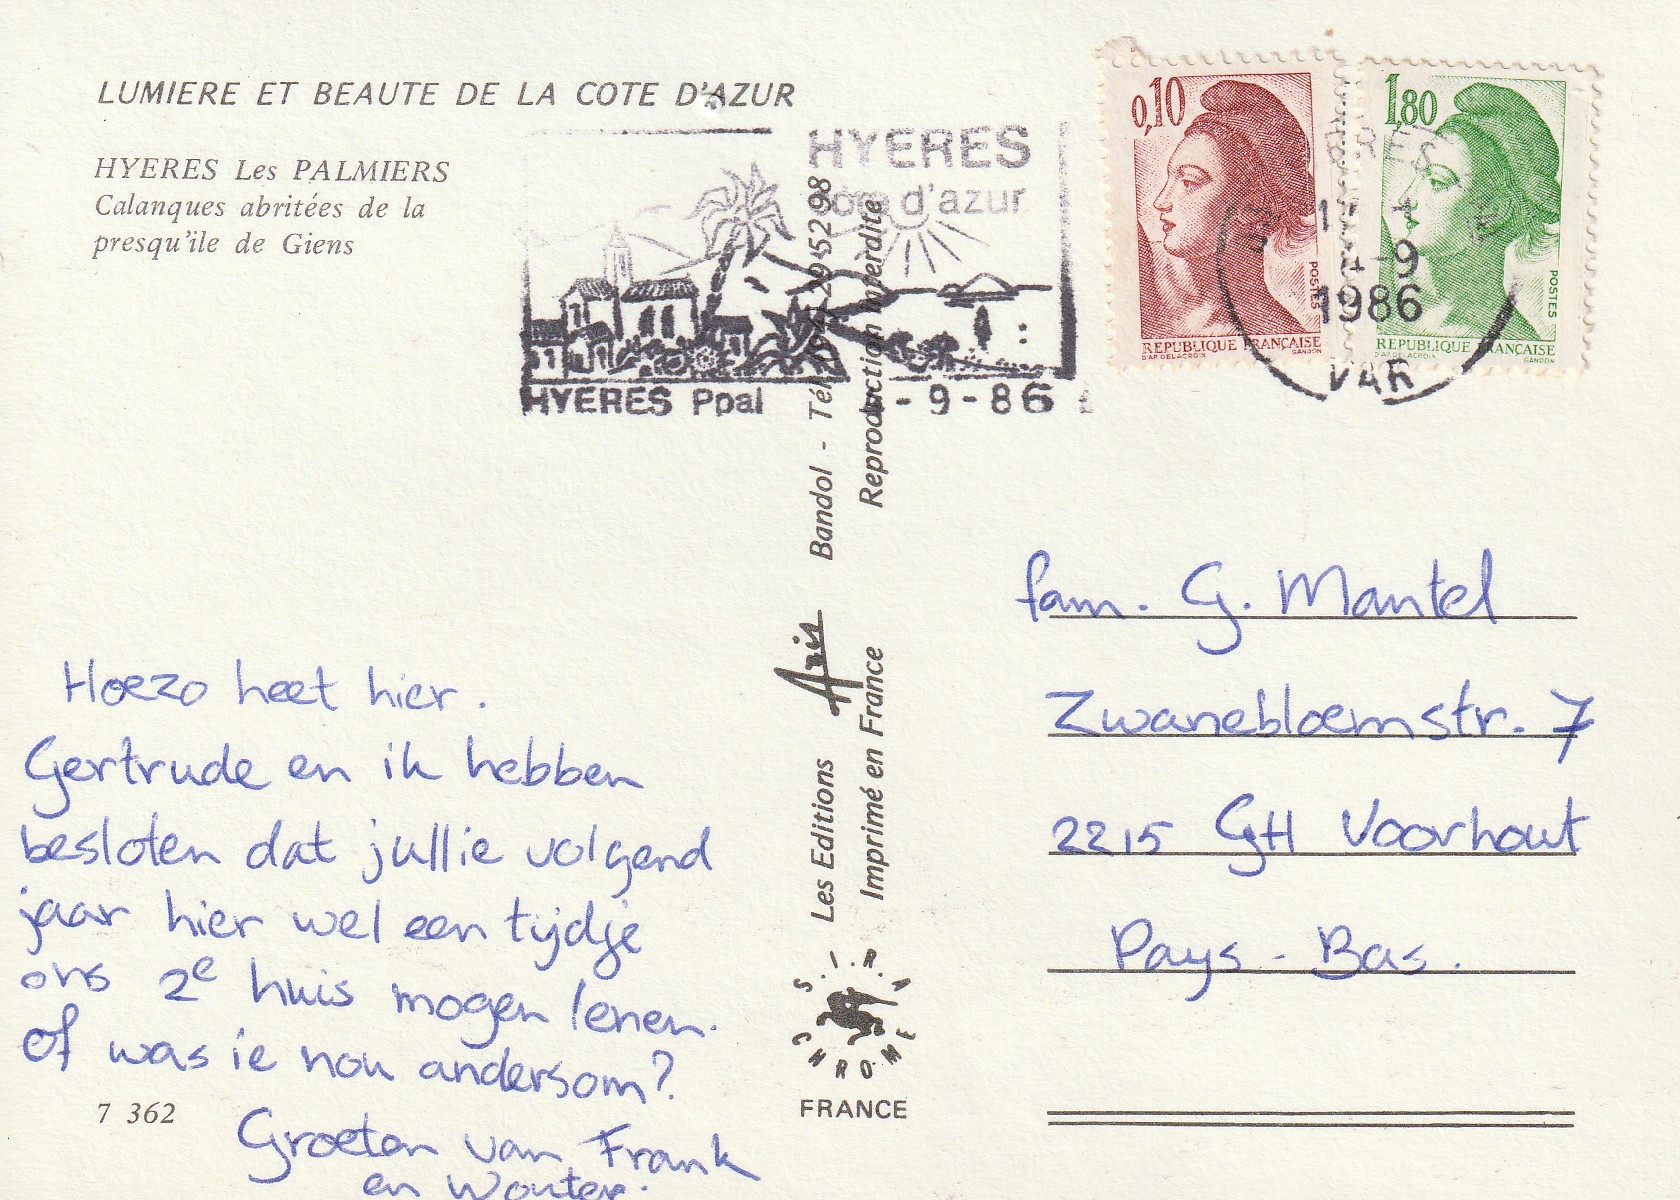 LUMIERE ET BEAUTE DE LA COTE D'AZUR
HYERES Les PALMIERS
Calanques abritées de la
presqu'ile de Giens
HYERES
côte d'azur
HYERES Ppal
- 9 - 86
0,10
POSTES
REPUBLIQUE FRANÇAISE
D'AP. DELACROIX
GANDON
1,80
POSTES
REPUBLIQUE FRANÇAISE
D'AP. DELACROIX
GANDON
-9
1986
VAR
Les Editions Aris Bandol - Tél. 29 52 98
Imprimé en France Reproduction interdite
S.I.R.A
CHROME
FRANCE
Hoezo heet hier.
Gertrude en ik hebben
besloten dat jullie volgend
jaar hier wel een tijdje
ons 2e huis mogen lenen.
of was ie nou andersom?
Groeten van Frank
en Wouter.
7 362
fam. G. Mantel
Zwanebloemstr. 7
2215 GH Voorhout
Pays - Bas.